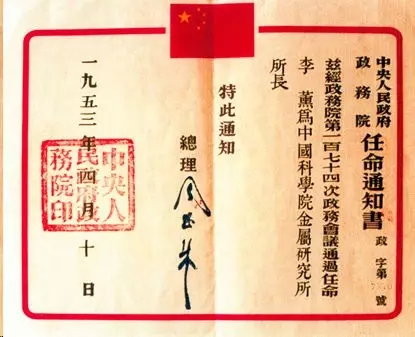 中央人民政府
政務院
任命通知書
政字第 號
茲經政務院第一百七十四次政務會議通過任命
李 薰爲中國科學院金屬研究所
所長
特此通知
總理 周恩來
一九五三年四月十日
中央人
民政府政
務院印